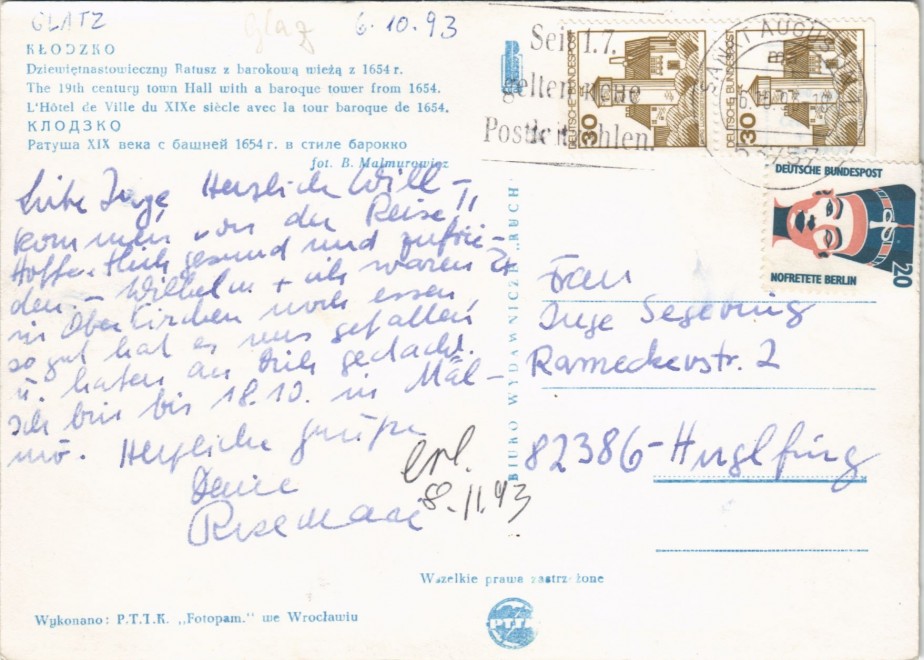 GLATZ
Glaz
6.10.93
KŁODZKO
Dziewiętnastowieczny Ratusz z barokową wieżą z 1654 r.
The 19th century town Hall with a baroque tower from 1654.
L'Hôtel de Ville du XIXe siècle avec la tour baroque de 1654.
КЛОДЗКО
Ратуша XIX века с башней 1654 г. в стиле барокко
fot. B. Malmurowicz
Liebe Inge, Herzlich Will-
kommen von der Reise!!
Hoffentlich gesund und zufrie-
den - Wilhelm + ich waren 2x
in Oberkirchen noch essen,
so gut hat es uns gefallen
u. haben an Dich gedacht.
Ich bin bis 18.10. in Mal-
mö. Herzliche Grüße
Deine
Rosemarie
erl.
8.11.93
BIURO WYDAWNICZE „RUCH"
Seit 1.7.
gelten neue
Postleitzahlen.
SANKT AUGUSTIN
DEUTSCHE BUNDESPOST
30
DEUTSCHE BUNDESPOST
30
DEUTSCHE BUNDESPOST
NOFRETETE BERLIN
20
Frau
Inge Segebring
Rameckerstr. 2
82386-Huglfing
Wszelkie prawa zastrzeżone
Wykonano: P.T.T.K. „Fotopam." we Wrocławiu
PTTK